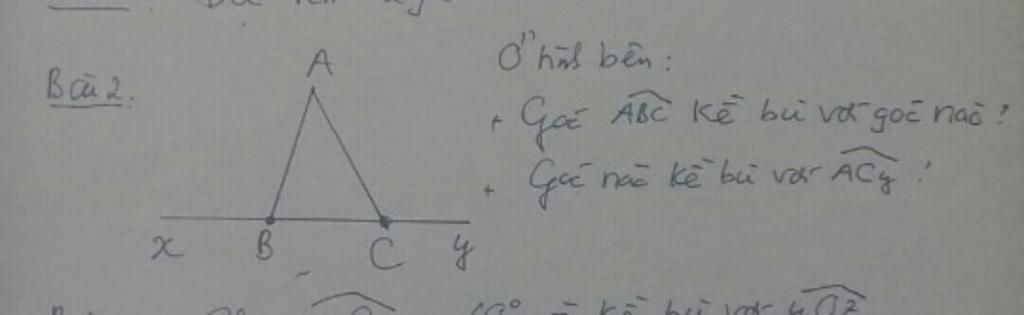 Bài 2.
A
x B C y
Ở hình bên:
+ Góc ABC kề bù với góc nào?
+ Góc nào kề bù với ACy?
kề bù với